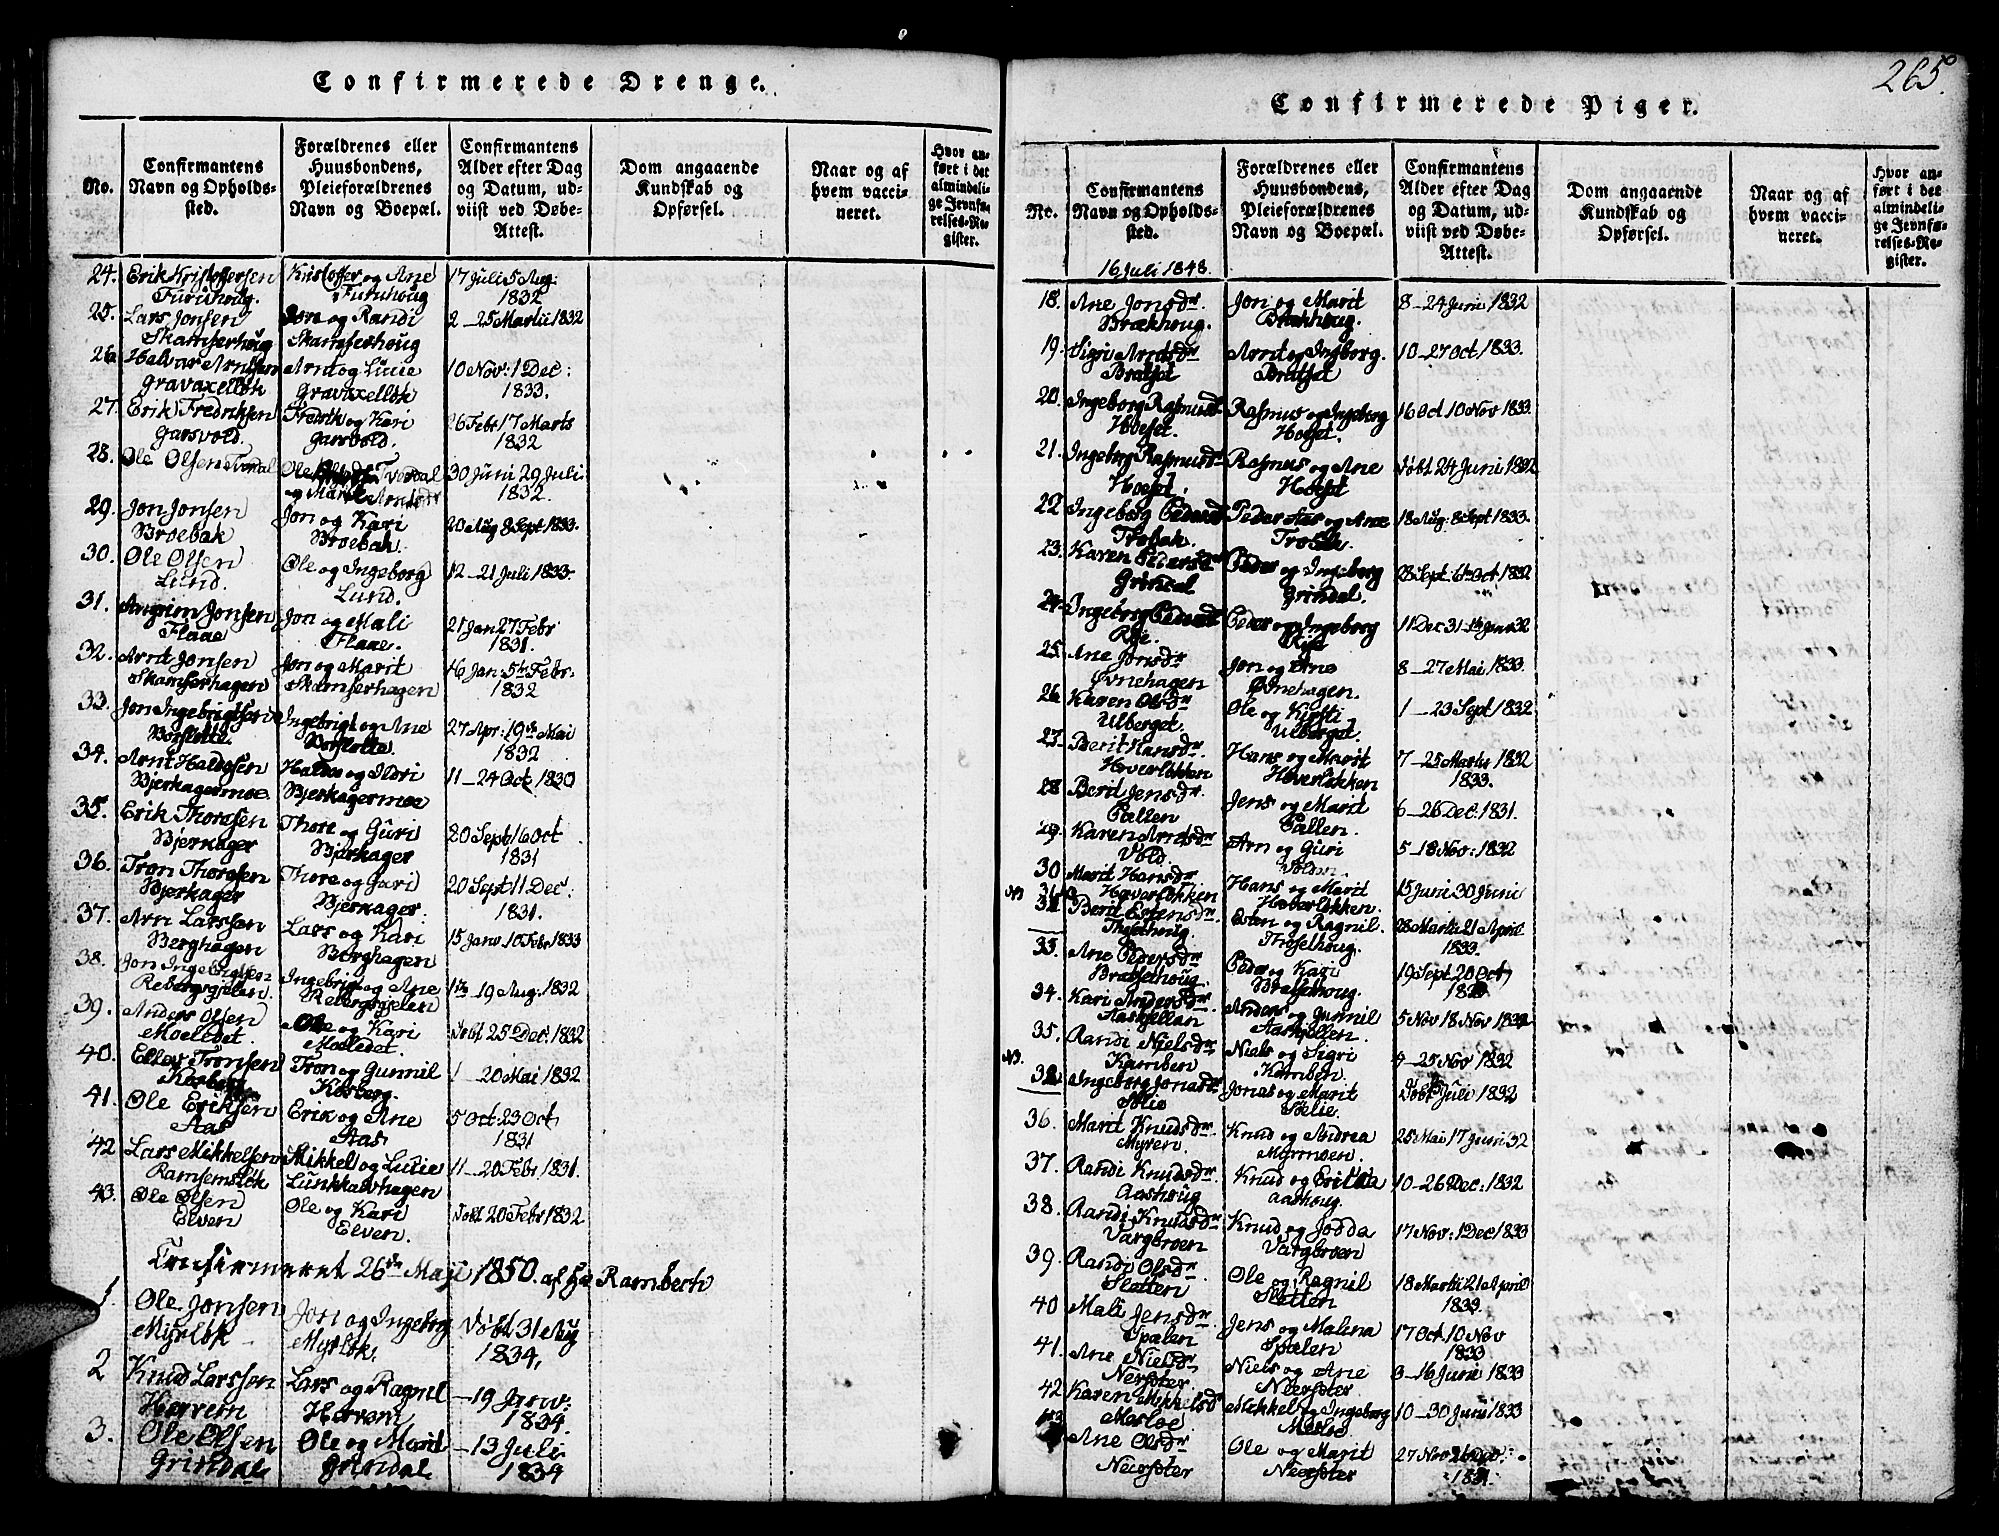 Confirmerede Drenge.
No.
Confirmantens
Navn og Opholds-
sted.
Forældrenes eller
Huusbondens,
Pleieforældrenes
Navn og Boepæl.
Confirmantens
Alder efter Dag
og Datum, ud-
viist ved Døbe-
Attest.
Dom angaaende
Kundskab og
Opførsel.
Maar og af
hvem vacci-
neret.
Hvor an-
ført i det
almindeli-
ge Jevnfø-
relses-Re-
gister.
24. Erik Kristoffersen Kristoffer og Ane 17 Juli 5 Aug:
Furuhoug. Furuhoug 1832
25. Lars Jonsen Jon og Randi 2 – 25 Martii 1832
Skamferhoug Skamferhoug
26. Halvar Arntsen Arnt og Lucie 10 Nov: 1 Dec:
Gravaxelløk Gravaxelløk 1833.
27. Erik Fredriksen Fredrik og Kari 26 Febr 17 Marts
Garsvold. Garsvold. 1832
28. Ole Olsen Tverdal Ole Tverdal 30 Juni 29 Juli
og Marit Arntsdr 1832.
29. Jon Jonsen Jon og Kari 20 Aug 8 Sept 1833.
Broebak Broebak.
30. Ole Olsen Ole og Ingeborg 12 – 21 Juli 1833.
Lund. Lund.
31. Angrim Jonsen Jon og Mali 21 Jan 27 Febr
Flaae Flaae. 1831.
32. Arnt Jonsen Jon og Marit 16 Jan: 5te Febr:
Skamserhagen Skamserhagen 1832
33. Jon Ingebrigtsen Ingebrigt og Ane 27 Apr: 19de Mai
Borslotte. Borslotte. 1832
34. Arnt Haldosen Haldo og Ildri 11 – 24 Oct. 1830
Bjerkagermoe. Bjerkagermoe
35. Erik Thoresen Thore og Guri 20 Sept 16 Oct
Bjerkager Bjerkager 1831
36. Tron Thoresen Thore og Guri 20 Sept 11 Dec:
Bjerkager Bjerkager. 1831.
37. Arn Larssen Lars og Kari 15 Janv. 10 Febr 1833
Berghagen Berghagen
38. Jon Ingebrigtsen Ingebrigt og Ane 1te 19 Aug: 1832
Rebergsjelen. Rebergsjelen
39. Anders Olsen Ole og Kari Døbt 25 Dec: 1832
Moeledet. Moeledet.
40. Ellev Tronsen Tron og Gunnil 1 – 20 Mai 1832
Kosberg Kosberg.
41. Ole Eriksen Erik og Ane 5 Oct. 23 Oct
Aas Aas 1831
42 Lars Mikkelsen Mikkel og Lucie 11 – 20 Febr. 1831.
Ramsemløk Lunkkalvhagen
43. Ole Olsen Ole og Kari Døbt 20 Febr 1832
Elven Elven.
Confirmeret 26de Maji 1850. af Hr Rambech
1. Ole Jonsen Jon og Ingebrig Døbt 31 Aug
Myrløk Myrløk. 1834,
2 Knud Larssen Lars og Ragnil – 19 Janv:
Horvem Horvem 1834.
3. Ole Olsen Ole og Marit – 13 Juli
Grindal Grindal 1834
265.
Confirmerede Piger.
No.
Confirmantens
Navn og Opholds-
sted.
Forældrenes eller
Huusbondens,
Pleieforældrenes
Navn og Boepæl.
Confirmantens
Alder efter Dag
og Datum, ud-
viist ved Døbe-
Attest.
Dom angaaende
Kundskab og
Opførsel.
Maar og af
hvem vacci-
neret.
Hvor an-
ført i det
almindeli-
ge Jevnfø-
relses-Re-
gister.
16 Juli 1848.
18. Ane Jonsdr. Jon og Marit 8 – 24 Juni 1832
Brækhoug. Brækhoug.
19. Sigri Arntsdr Arnt og Ingborg. 10 – 27 Oct 1833.
Bratset Bratset
20. Ingeborg Rasmusdr Rasmus og Ingeborg 16 Oct 10 Nov 1833.
Hoeset. Hoeset.
21. Ingeborg Rasmusdr Rasmus og Ane Døbt 24 Juni 1832
Hoeset. Hoeset
22. Ingeborg Pedersdr Peder Aas og Ane 18 Aug: 8 Sept 1833.
Trobak. Trobak.
23. Karen Pedersdr Peder og Ingeborg 28 Sept. 6te Oct 1832
Grindal Grindal.
24. Ingeborg Pedersdr Peder og Ingeborg 11 Dec 31te Janv 32
Rise. Rise
25. Ane Jonsdr Jon og Ane 8 – 27 Mai 1833.
Øvnehagen Øvnehagen.
26 Karen Olsdr Ole og Kirsti 1 – 23 Sept 1832
Ulberget Ulberget.
27. Berit Hansdr. Hans og Marit 7 – 25 Martii 1832
Hoverløkken Hoverløkken 1833.
28 Berit Jensdr. Jens og Marit 6 – 26 Dec: 1831.
Pallen Pallen.
29. Karen Arntsdr Arn og Guri 5 – 18 Nov: 1832
Vold Voldm.
30 Marit Hansdr. Hans og Marit 15 Juni 30 Juni
Hoverløkken Hoverløkken.
31. Berit Estensdr. Esten og Ragnil 28 Martii 21 April
Thoselhoug. Thoselhoug. 1833.
33. Ane Pedersdr Peder og Kari 19 Sept 20 Oct
Bratsethoug Bratsethoug.
34. Kari Andersdr Anders og Gunnil 5 Nov 18 Nov 1832
Aasgjellan Aasgjellen.
35. Randi Nielsdr Niels og Sigri 4 – 25 Nov 1832
Kamben Kamben.
NB.
32 Ingeborg Jonasdr Jonas og Marit Døbt Juli 1832
Sølie Sølie.
36. Marit Knudsdr. Knud og Andrea 25 Mai 17 Juni 32
Myren Myrmoen.
37. Randi Knudsdr. Knud og Erikka 10 – 26 Dec: 1832
Aashoug Aashoug.
38. Randi Knudsdr Knud og Jodda 17 Nov: 1 Dec 1833
Vargbroen Vargbroen
39. Randi Olsdr. Ole og Ragnil 18 Martii 21 April
Sletten Sletten 1833.
40 Mali Jensdr. Jens og Malena 17 Oct. 10 Nov
Spalen Spalen 1833
41. Ane Nielsdr Niels og Ane 3 – 16 Juni 1833
Nersøter Neersøter.
42 Karen Mikkelsdr Mikkel og Ingeborg 10 – 30 Juni 1833
Mosloe Mosloe
Ane Olsdr Ole og Marit 27 Nov 26 Dec:
Neersøter Neersøter 1831.